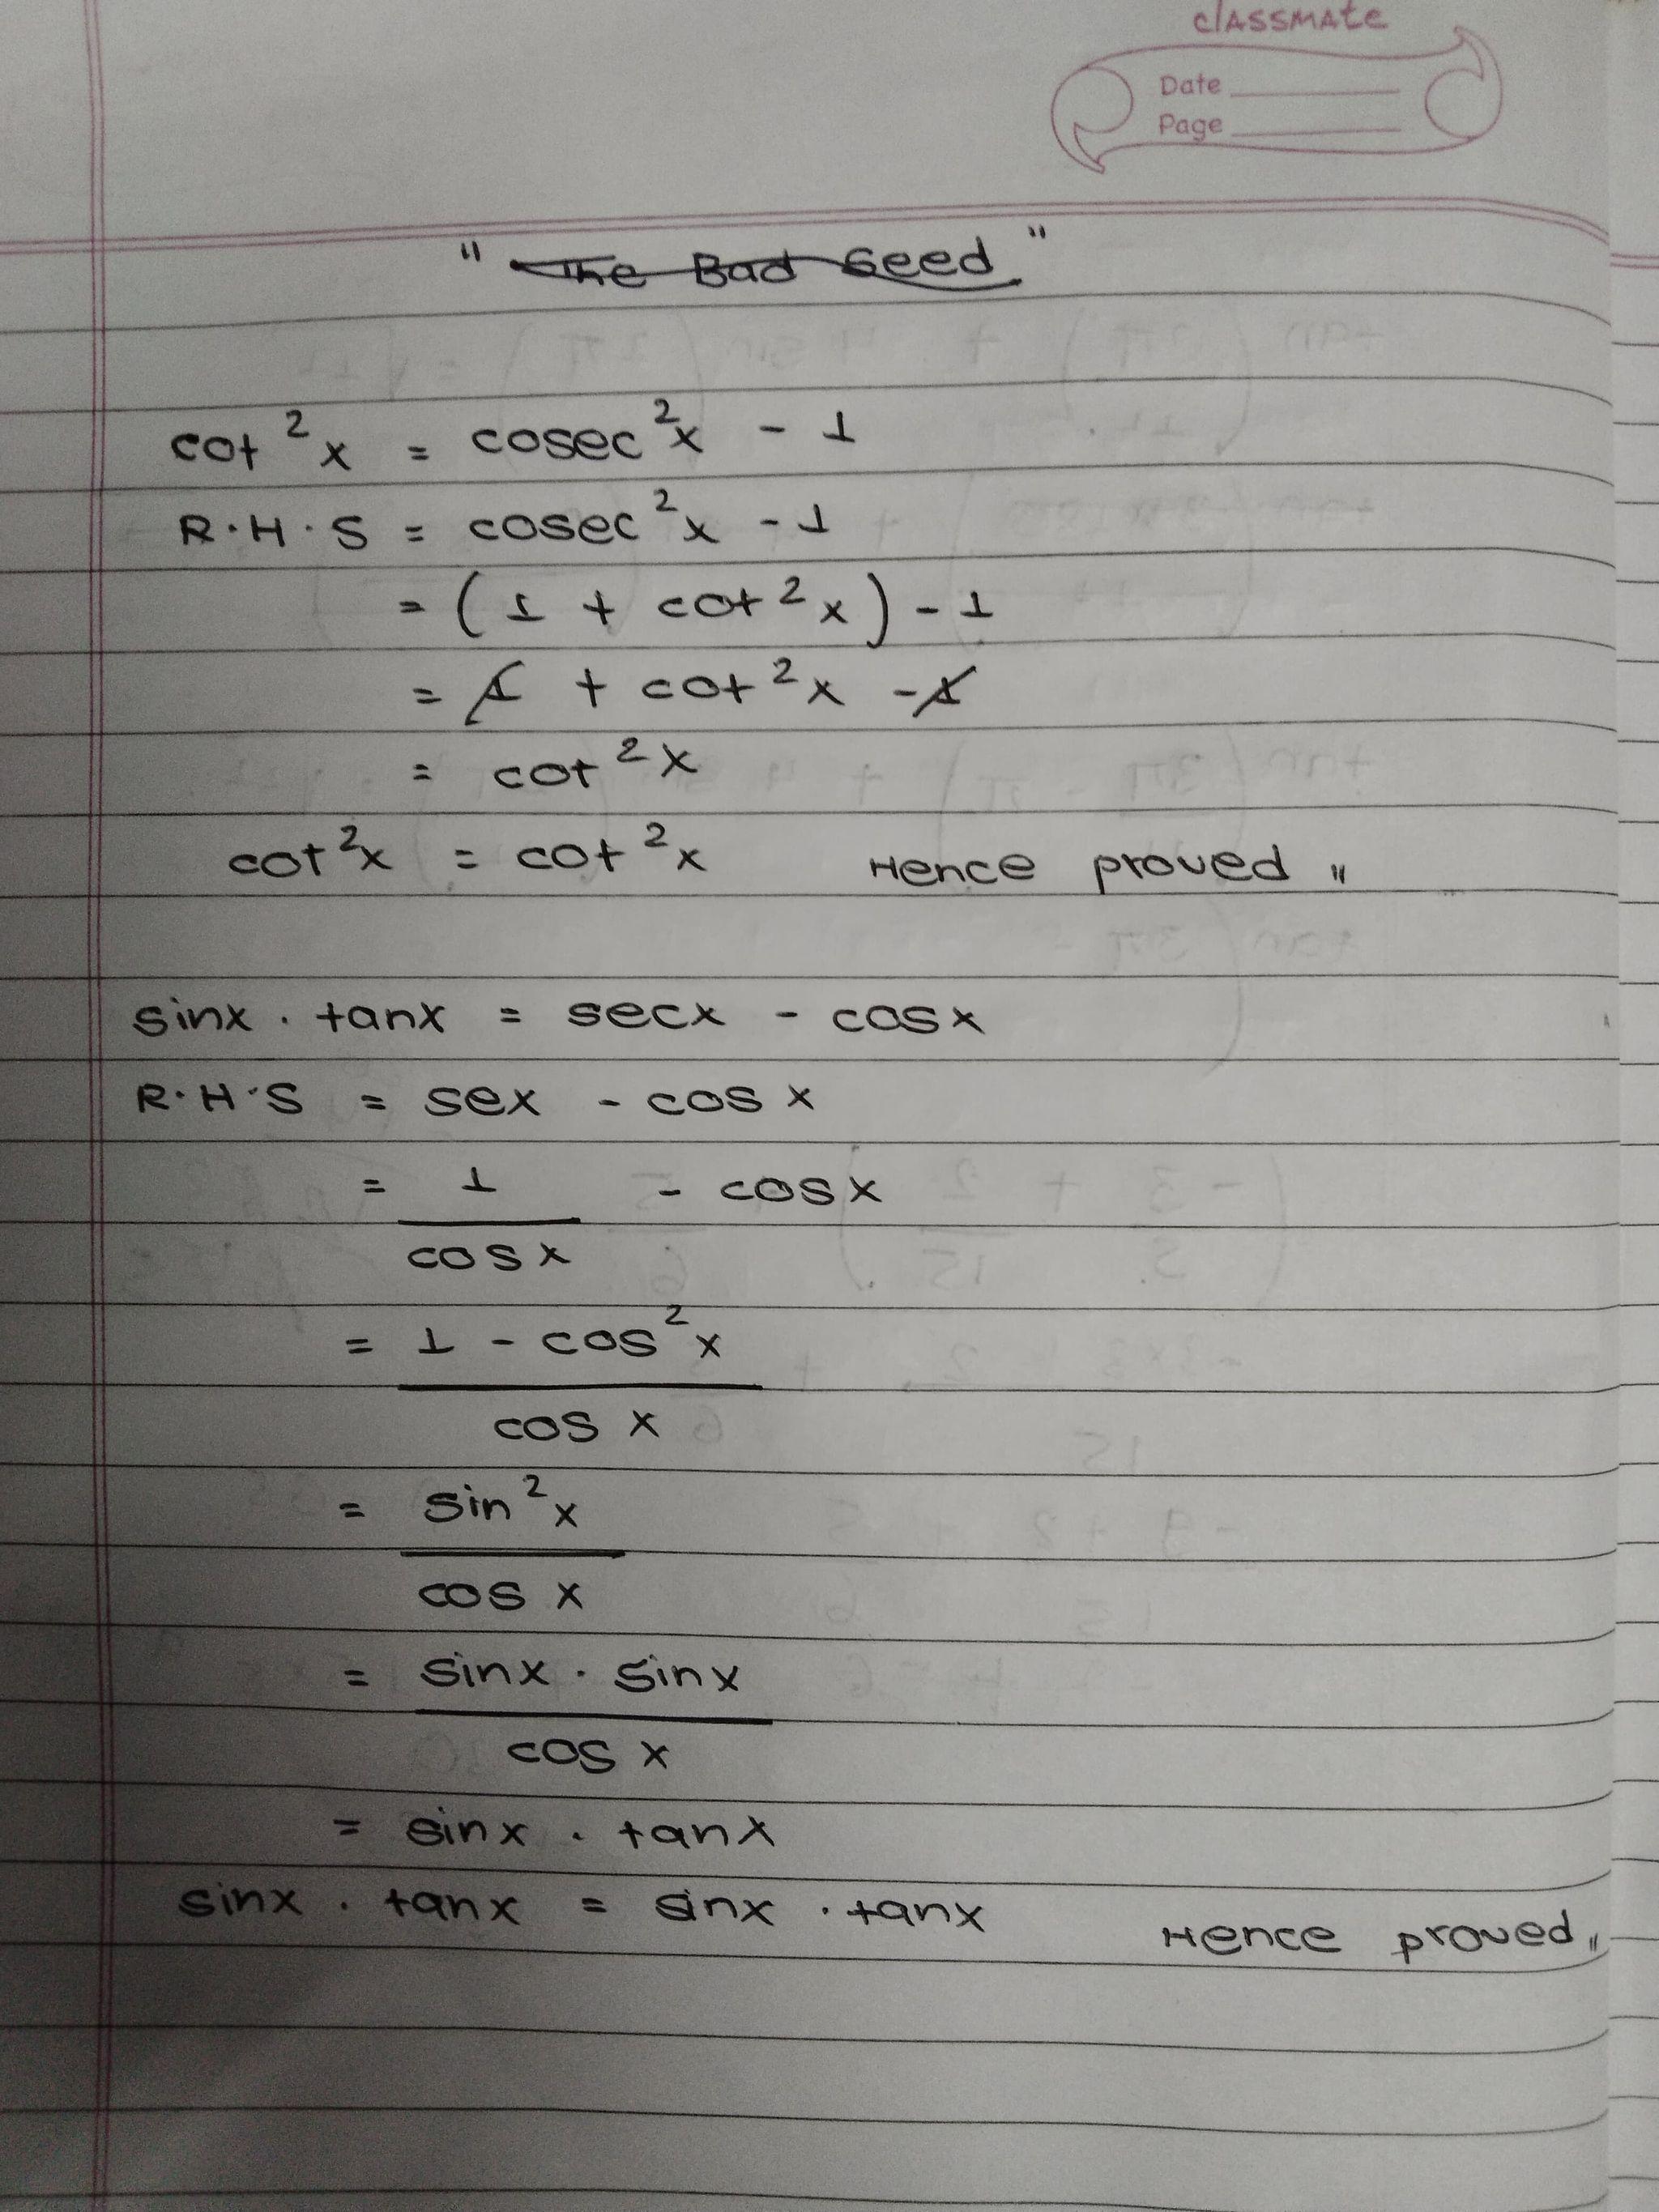 classmate
Date
Page
"The Bad Seed"
cot²x = cosec²x - 1
R.H.S = cosec²x - 1
= (1 + cot²x) - 1
= 1 + cot²x - 1
= cot²x
cot²x = cot²x Hence proved "
sinx . tanx = secx - cosx
R.H.S = sex - cos x
= 1 - cosx
cosx
= 1 - cos²x
cos x
= sin²x
cos x
= sinx . sinx
cos x
= sinx . tanx
sinx . tanx = sinx . tanx Hence proved "